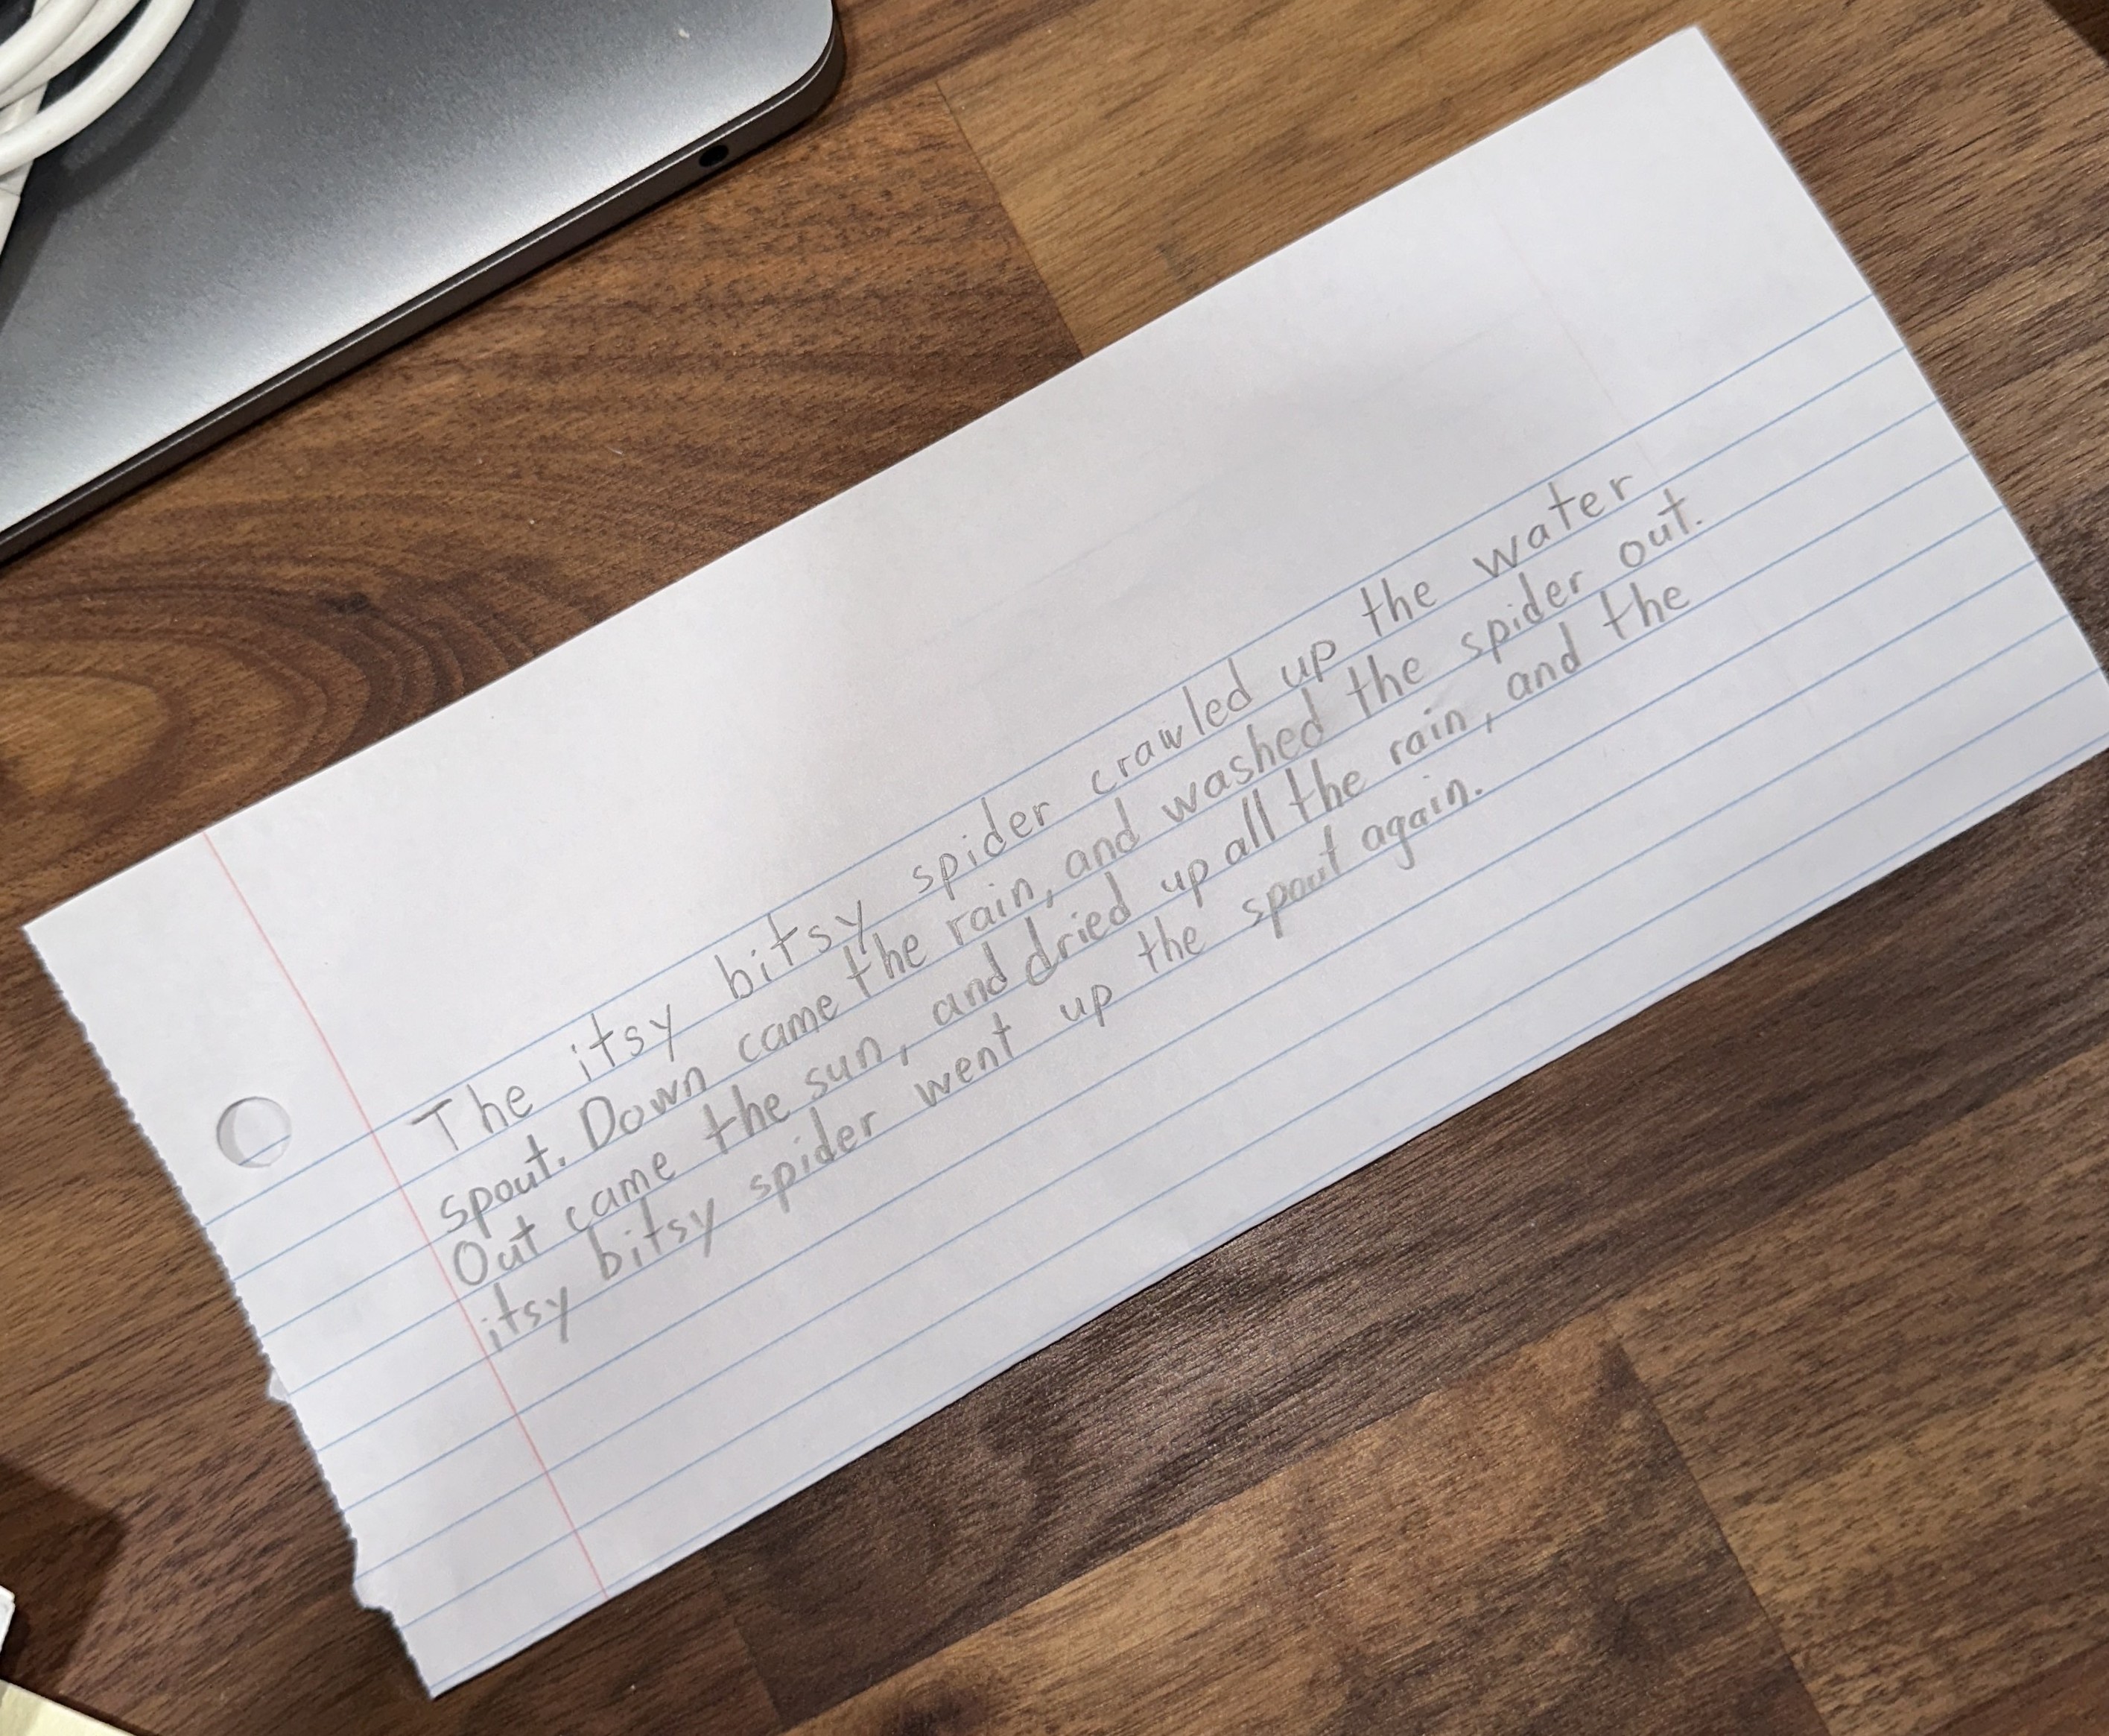 The itsy bitsy spider crawled up the water
spout. Down came the rain, and washed the spider out.
Out came the sun, and dried up all the rain, and the
itsy bitsy spider went up the spout again.